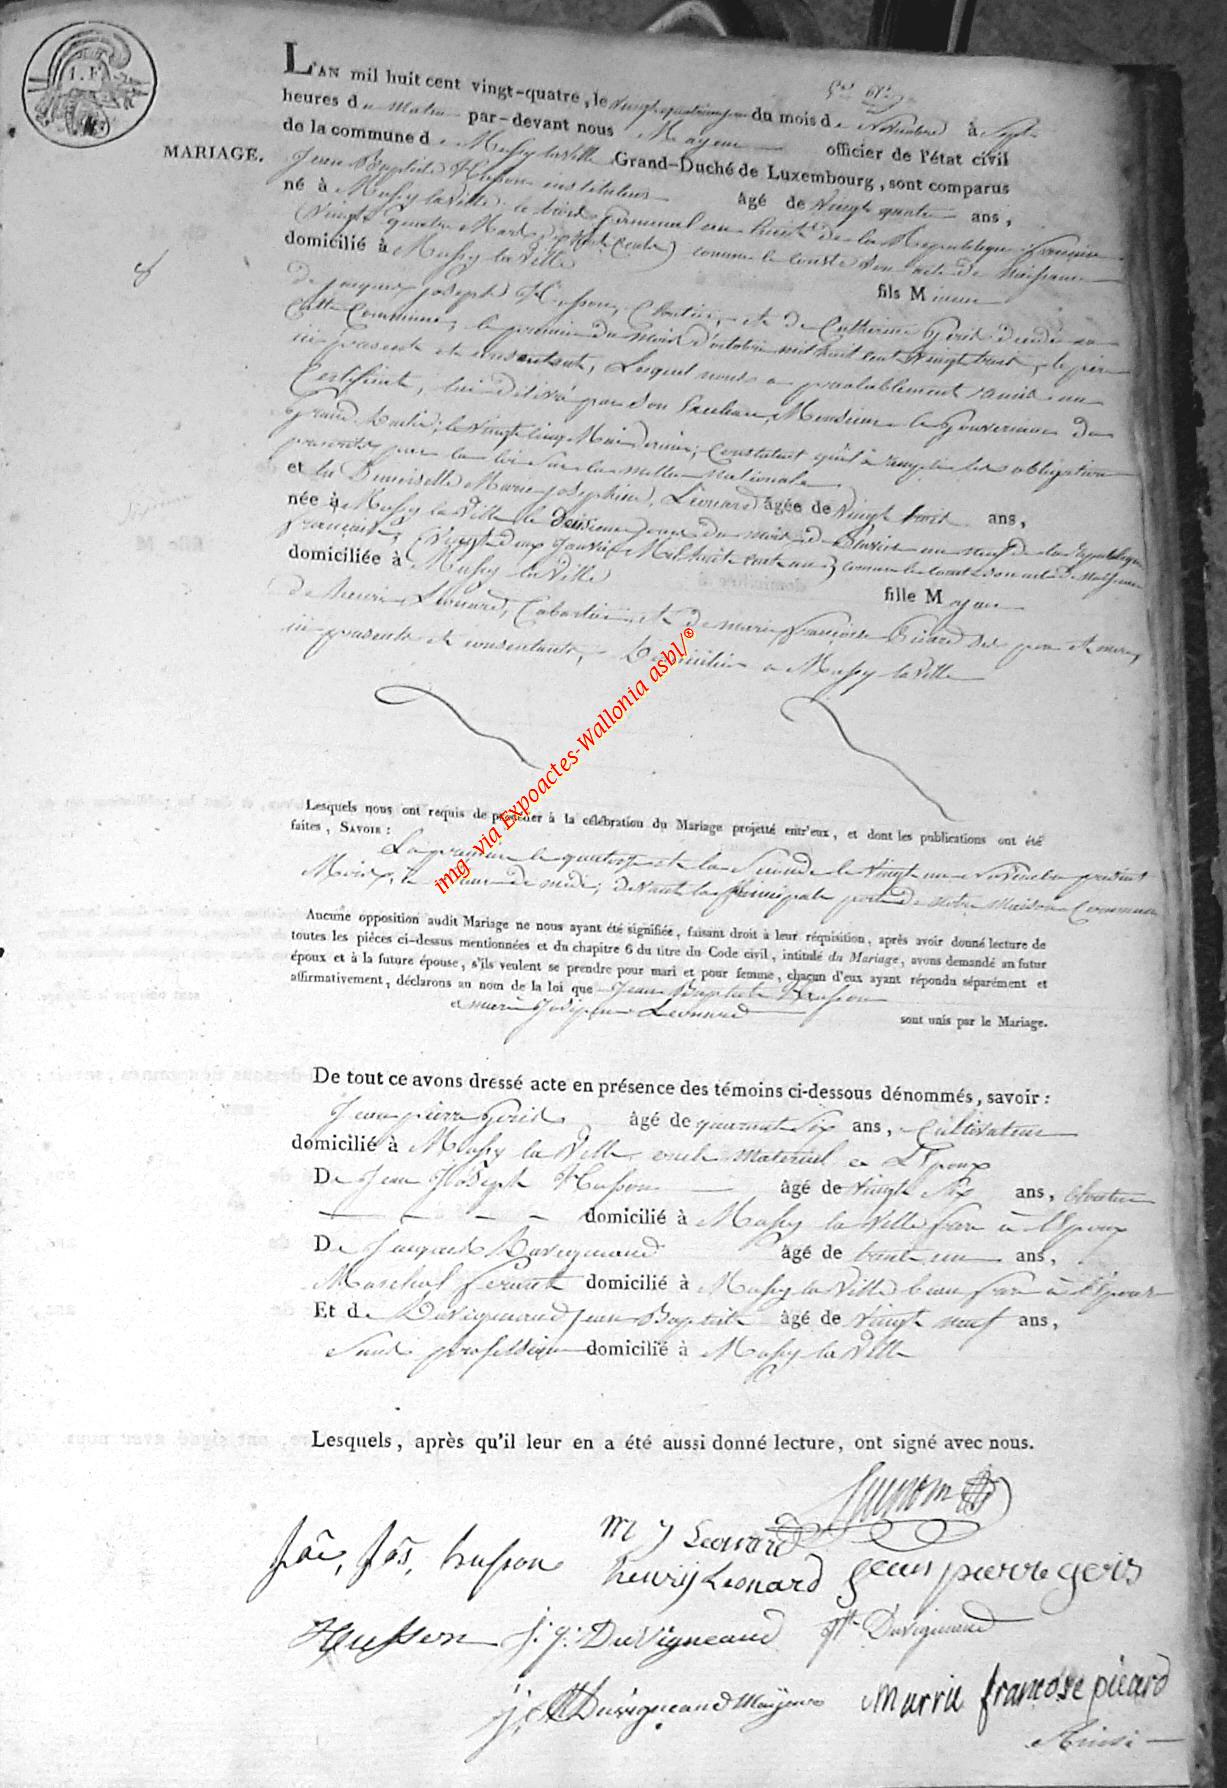 I. F.
MARIAGE.
L'AN mil huit cent vingt-quatre, le vingt quatrieme jour du mois de Novembre à Sept
heures du matin par-devant nous Mayeur officier de l'état civil
de la commune de Mussy la Ville Grand-Duché de Luxembourg, sont comparus
Jean Baptiste Husson instituteur âgé de vingt quatre ans,
né à Mussy la Ville le trois germinal an huit de la Republique francaise
(vingt quatre Mars) comme le conste son acte de naissance
domicilié à Mussy la Ville fils Mineur
de jacques joseph Husson, et de Catherine Geris decedée en
cette Commune, le premier du mois d'octobre mil huit cent vingt trois, le père
ici présent et consentant, Lequel nous a prealablement remis un
Certificat, lui délivré par Son Excellence, Monsieur le Gouverneur du
Grand Duché, le vingt cinq Mai dernier, Constatant qu'il a rempli les obligations
par la loi sur la milice nationale
et la Demoiselle Marie josephine Léonard âgée de vingt trois ans,
née à Mussy la Ville le deuxieme jour du mois de Pluviose an neuf de la Republique
francaise, (vingt deux janvier Mil huit cent un) comme le conste son acte de naissance
domiciliée à Mussy la Ville fille Majeure
de henri Léonard, Cabartier, et de marie françoise Picard ses pere et mere,
ici presents et consentants, Domiciliés a Mussy la Ville
Lesquels nous ont requis de procéder à la célébration du Mariage projetté entr'eux, et dont les publications ont été
faites, SAVOIR :
La premiere le quatorze et la Seconde le vingt un Novembre présent
Mois, a heure de midi, devant la principale porte de notre maison Commune
Aucune opposition audit Mariage ne nous ayant été signifiée, faisant droit à leur réquisition, après avoir donné lecture de
toutes les pièces ci-dessus mentionnées et du chapitre 6 du titre du Code civil, intitulé du Mariage, avons demandé au futur
époux et à la future épouse, s'ils veulent se prendre pour mari et pour femme, chacun d'eux ayant répondu séparément et
affirmativement, déclarons au nom de la loi que Jean Baptiste Husson
et marie Josephine Leonard sont unis par le Mariage.
De tout ce avons dressé acte en présence des témoins ci-dessous dénommés, savoir :
Jean pierre Geris âgé de quarante six ans, Cultivateur
domicilié à Mussy la Ville oncle maternel a L'Epoux
De Jean Joseph Husson âgé de vingt six ans,
domicilié à Mussy la Ville frere à l'Epoux
De Jacques Duvigneaud âgé de trente un ans,
Marechal ferrant domicilié à Mussy la Ville beau frere à l'Epoux
Et de Duvigneaud Jean Baptiste âgé de vingt neuf ans,
Sans profession domicilié à Mussy la Ville
Lesquels, après qu'il leur en a été aussi donné lecture, ont signé avec nous.
Husson
M J Leonard
Jac, Jos, husson henry Leonard jean pierre geris
Husson j. j. Duvigneaud Bte Duvigneaud
Duvigneaud Mayeur Marrie francose picard
img- via Expoactes-Wallonia asbl/®